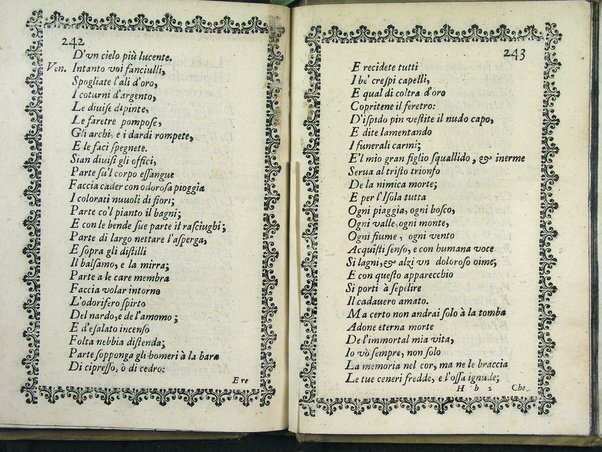 242
D'vn cielo più lucente.
Ven. Intanto voi fanciulli,
Spogliate l'ali d'oro,
I coturni d'argento,
Le diuise dipinte,
Le faretre pompose,
Gli archi, e i dardi rompete,
E le faci spegnete.
Sian diuisi gli offici,
Parte su'l corpo essangue
Faccia cader con odorosa pioggia
I colorati nuuoli di fiori;
Parte co'l pianto il bagni;
E con le bende sue parte il rasciughi;
Parte di largo nettare l'asperga,
E sopra gli distilli
Il balsamo, e la mirra;
Parte a le care membra
Faccia volar intorno
L'odorifero spirto
Del nardo, e de l'amomo;
E d'esalato incenso
Folta nebbia distenda;
Parte sopponga gli homeri à la bara
Di cipresso, ò di cedro:
Ere
243
E recidete tutti
I be' crespi capelli,
E qual di coltra d'oro
Copritene il feretro:
D'ispido pin vestite il nudo capo,
E dite lamentando
I funerali carmi;
E'l mio gran figlio squallido, & inerme
Serua al tristo trionfo
De la nimica morte;
E per l'Isola tutta
Ogni piaggia, ogni bosco,
Ogni valle, ogni monte,
Ogni fiume, ogni vento
Acquisti senso, e con humana voce
Si lagni, & alzi vn doloroso oime,
E con questo apparecchio
Si porti à sepelire
Il cadauero amato.
Ma certo non andrai solo à la tomba
Adone eterna morte
De l'immortal mia vita,
Io vò sempre, non solo
La memoria nel cor, ma ne le braccia
Le tue ceneri fredde, e l'ossa ignude;
H h 2 Che